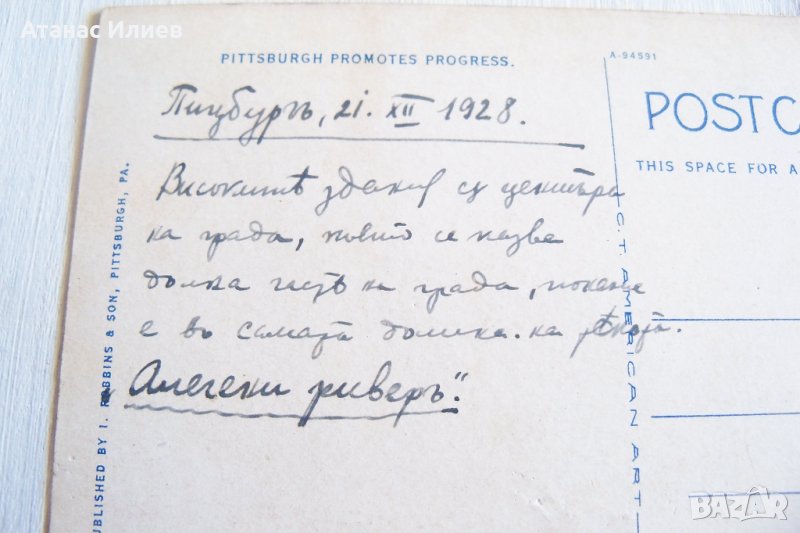 Атанас Илиев
PITTSBURGH PROMOTES PROGRESS.
A-94591
POSTC
THIS SPACE FOR A
Питсбургъ, 21. XII 1928.
Високитѣ здания сѫ центъра
на града, който се назва
долна часть на града, понеже
е въ самата долина на рѣката.
"Алегени риверъ".
PUBLISHED BY I. ROBBINS & SON, PITTSBURGH, PA.
C. T. AMERICAN ART
BAZAR